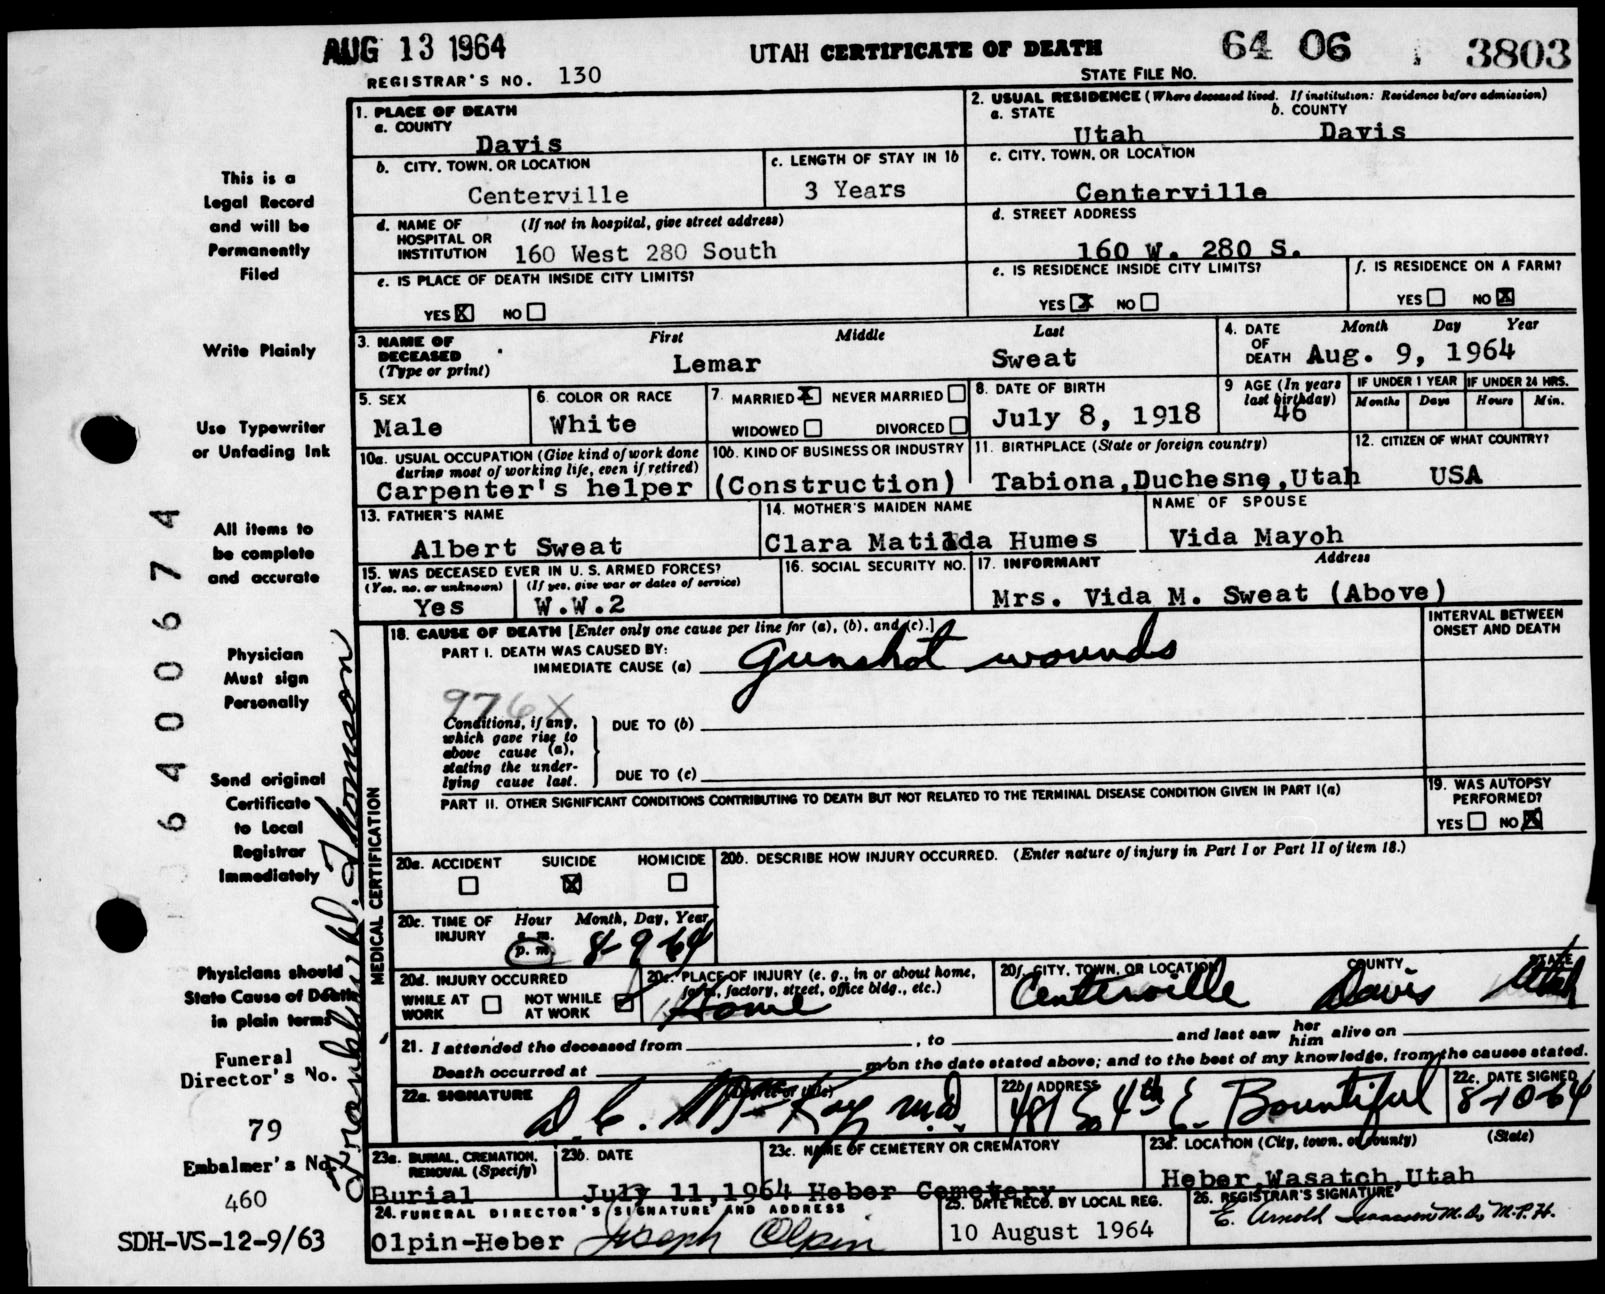 AUG 13 1964
UTAH CERTIFICATE OF DEATH
64 06 3803
REGISTRAR'S NO. 130
STATE FILE NO.
1. PLACE OF DEATH
a. COUNTY
Davis
2. USUAL RESIDENCE (Where deceased lived. If institution: Residence before admission)
a. STATE b. COUNTY
Utah Davis
b. CITY, TOWN, OR LOCATION
Centerville
c. LENGTH OF STAY IN 1b
3 Years
c. CITY, TOWN, OR LOCATION
Centerville
d. NAME OF HOSPITAL OR INSTITUTION (If not in hospital, give street address)
160 West 280 South
d. STREET ADDRESS
160 W. 280 S.
e. IS PLACE OF DEATH INSIDE CITY LIMITS?
YES X NO
e. IS RESIDENCE INSIDE CITY LIMITS?
YES X NO
f. IS RESIDENCE ON A FARM?
YES NO X
3. NAME OF DECEASED (Type or print)
First Middle Last
Lemar Sweat
4. DATE OF DEATH Month Day Year
Aug. 9, 1964
5. SEX
Male
6. COLOR OR RACE
White
7. MARRIED X NEVER MARRIED
WIDOWED DIVORCED
8. DATE OF BIRTH
July 8, 1918
9 AGE (In years last birthday)
46
IF UNDER 1 YEAR
Months Days
IF UNDER 24 HRS.
Hours Min.
10a. USUAL OCCUPATION (Give kind of work done
during most of working life, even if retired)
Carpenter's helper
10b. KIND OF BUSINESS OR INDUSTRY
(Construction)
11. BIRTHPLACE (State or foreign country)
Tabiona,Duchesne,Utah
12. CITIZEN OF WHAT COUNTRY?
USA
13. FATHER'S NAME
Albert Sweat
14. MOTHER'S MAIDEN NAME
Clara Matilda Humes
NAME OF SPOUSE
Vida Mayoh
15. WAS DECEASED EVER IN U. S. ARMED FORCES?
(Yes, no, or unknown) (If yes, give war or dates of service)
Yes W.W.2
16. SOCIAL SECURITY NO.
17. INFORMANT Address
Mrs. Vida M. Sweat (Above)
MEDICAL CERTIFICATION
18. CAUSE OF DEATH [Enter only one cause per line for (a), (b), and (c).]
INTERVAL BETWEEN
ONSET AND DEATH
PART I. DEATH WAS CAUSED BY:
IMMEDIATE CAUSE (a) Gunshot wounds
976X
Conditions, if any,
which gave rise to
above cause (a),
stating the under-
lying cause last.
DUE TO (b)
DUE TO (c)
PART II. OTHER SIGNIFICANT CONDITIONS CONTRIBUTING TO DEATH BUT NOT RELATED TO THE TERMINAL DISEASE CONDITION GIVEN IN PART I(a)
19. WAS AUTOPSY
PERFORMED?
YES NO X
20a. ACCIDENT SUICIDE HOMICIDE
X
20b. DESCRIBE HOW INJURY OCCURRED. (Enter nature of injury in Part I or Part II of item 18.)
20c. TIME OF INJURY
Hour Month, Day, Year
a. m.
p. m. 8-9-64
20d. INJURY OCCURRED
WHILE AT WORK NOT WHILE AT WORK
20e. PLACE OF INJURY (e. g., in or about home,
farm, factory, street, office bldg., etc.)
Home
20f. CITY, TOWN, OR LOCATION COUNTY STATE
Centerville Davis Utah
21. I attended the deceased from , to and last saw her him alive on
Death occurred at m on the date stated above; and to the best of my knowledge, from the causes stated.
22a. SIGNATURE (Degree or title)
D. C. McKay M.D.
22b. ADDRESS
481 So 4th E. Bountiful
22c. DATE SIGNED
8-10-64
23a. BURIAL, CREMATION,
REMOVAL (Specify)
Burial
23b. DATE
July 11,1964
23c. NAME OF CEMETERY OR CREMATORY
Heber Cemetery
23d. LOCATION (City, town, or county) (State)
Heber,Wasatch,Utah
24. FUNERAL DIRECTOR'S SIGNATURE AND ADDRESS
Olpin-Heber Joseph Olpin
25. DATE RECD. BY LOCAL REG.
10 August 1964
26. REGISTRAR'S SIGNATURE
E. Arnold Isaacson M.D., M.P.H.
This is a
Legal Record
and will be
Permanently
Filed
Write Plainly
Use Typewriter
or Unfading Ink
All items to
be complete
and accurate
Physician
Must sign
Personally
Send original
Certificate
to Local
Registrar
Immediately
Physicians should
State Cause of Death
in plain terms
Funeral
Director's No.
79
Embalmer's No.
460
SDH-VS-12-9/63
6400674